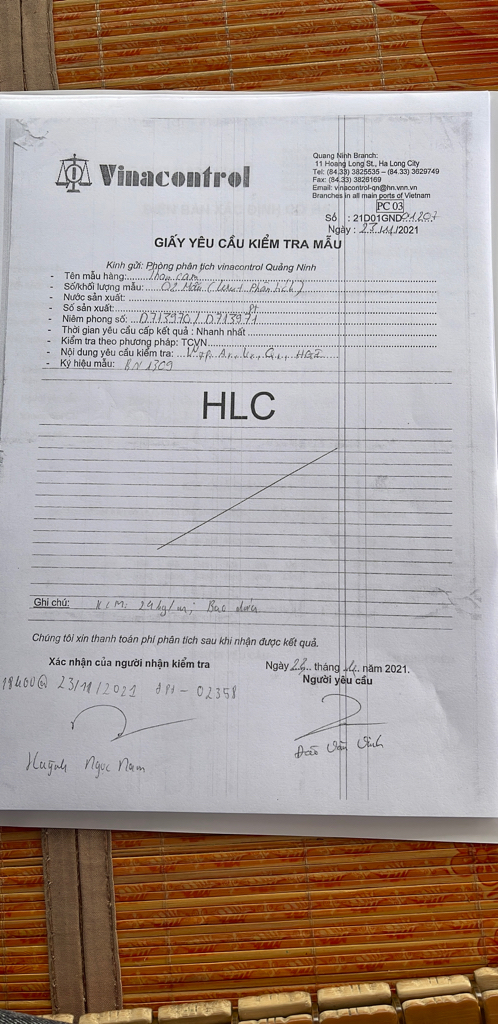 Vinacontrol
Quang Ninh Branch:
11 Hoang Long St., Ha Long City
Tel: (84.33) 3825535 – (84.33) 3629749
Fax: (84.33) 3826169
Email: vinacontrol-qn@hn.vnn.vn
Branches in all main ports of Vietnam
PC 03
Số : 21D01GND01207
Ngày : 23/11/2021
GIẤY YÊU CẦU KIỂM TRA MẪU
Kính gửi: Phòng phân tích vinacontrol Quảng Ninh
- Tên mẫu hàng: Than cám
- Số/khối lượng mẫu: 02 Mẫu (Lưu + Phân tích)
- Nước sản xuất:
- Số sản xuất:
- Niêm phong số: D713970 / D713971
- Thời gian yêu cầu cấp kết quả : Nhanh nhất
- Kiểm tra theo phương pháp: TCVN
- Nội dung yêu cầu kiểm tra:
- Ký hiệu mẫu: BN 1309
HLC
Ghi chú: 24kg/m; Bao
Chúng tôi xin thanh toán phí phân tích sau khi nhận được kết quả.
Xác nhận của người nhận kiểm tra
Ngày 23 tháng 11 năm 2021.
Người yêu cầu
23/11/2021 - 02358
Đào Văn Vinh
Huỳnh Ngọc Nam